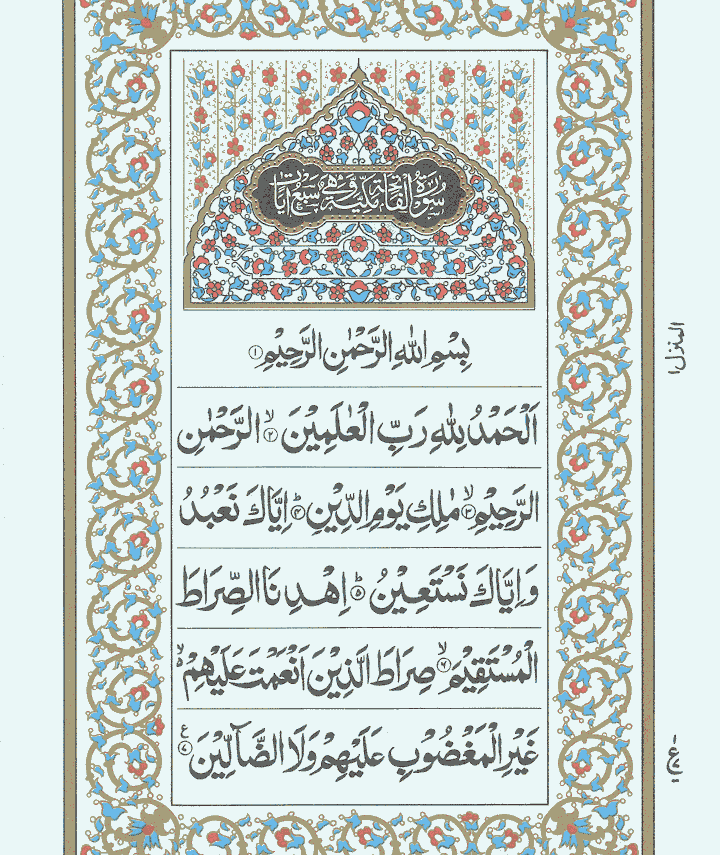 سُوْرَةُ الْفَاتِحَةِ مَكِّيَّةٌ وَّهِيَ سَبْعُ اٰيَاتٍ
بِسْمِ اللّٰهِ الرَّحْمٰنِ الرَّحِيْمِ ۝١
اَلْحَمْدُ لِلّٰهِ رَبِّ الْعٰلَمِيْنَ ۙ۝٢ الرَّحْمٰنِ
الرَّحِيْمِ ۙ۝٣ مٰلِكِ يَوْمِ الدِّيْنِ ؕ۝٤ اِيَّاكَ نَعْبُدُ
وَاِيَّاكَ نَسْتَعِيْنُ ؕ۝٥ اِهْدِنَا الصِّرَاطَ
الْمُسْتَقِيْمَ ۙ۝٦ صِرَاطَ الَّذِيْنَ اَنْعَمْتَ عَلَيْهِمْ ۙ
غَيْرِ الْمَغْضُوْبِ عَلَيْهِمْ وَلَا الضَّآلِّيْنَ ۝٧ ع
المنزل ١